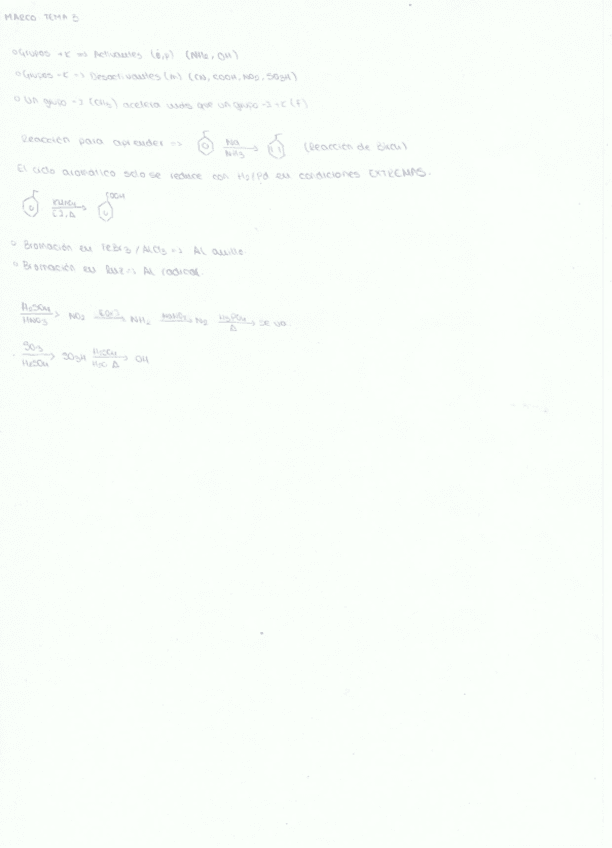 MARCO TEMA 5
Grupos +K => Activantes (o,p) (NH2, OH)
Grupos -K => Desactivantes (m) (CN, COOH, NO2, SO3H)
Un grupo (CH3) acelera más que un grupo -I +K (F)
Reacción para aprender => Na NH3 (Reacción de Birch)
El ciclo aromático solo se reduce con H2/Pd en condiciones EXTREMAS.
KMnO4 [ ], Δ COOH
Bromación en FeBr3/AlCl3 => Al anillo.
Bromación en luz => Al radical.
H2SO4 HNO3 NO2 NH2 N2 H3PO2 Δ se va
SO3 H2SO4 SO3H H2SO4 Δ OH